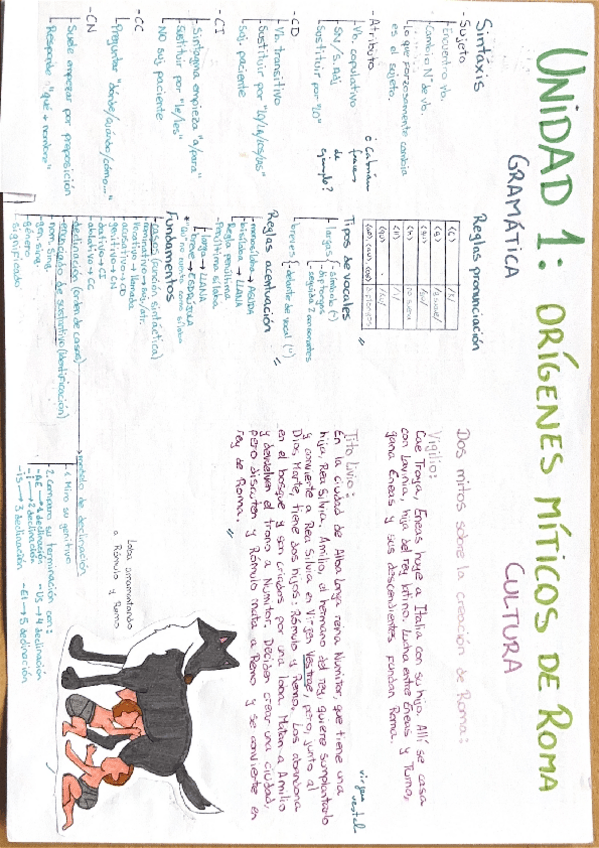 UNIDAD 1: ORÍGENES MÍTICOS DE ROMA
GRAMÁTICA
Sintaxis
- Sujeto
Encuentro vb.
Cambio Nº de vb.
Lo que forzosamente cambia
es el sujeto.
- Atributo
Vb. copulativo
SN/S. Adj
Sustituir por "lo"
de
ejemplo?
- CD
Vb. transitivo
Sustituir por "lo/la/los/las"
Suj. paciente
- CI
Sintagma empieza "a/para"
Sustituir por "le/les"
NO suj. paciente
- CC
Preguntar "dónde/cuándo/cómo..."
- CN
Suele empezar por preposición
Responde "qué + nombre"
Reglas pronunciación
Tipos de vocales
largas
- símbolo (-)
- diptongos
- seguida 2 consonantes
breves
- delante de vocal (u)
Reglas acentuación
monosílaba → AGUDA
bisílaba → LLANA
Regla penúltima
Penúltima sílaba
larga → LLANA
breve → ESDRÚJULA
Fundamentos
casos (función sintáctica)
nominativo → suj/atr.
Vocativo → llamada
acusativo → CD
genitivo → CN
dativo → CI
ablativo → CC
declinación (orden de casos)
enunciado de sustantivo (identificación)
nom. sing.
gen. sing.
género
significado
→ modelo de declinación
1. Miro su genitivo
2. Comparo su terminación con:
- AE → 1 declinación
- I → 2 declinación
- IS → 3 declinación
- US → 4 declinación
- EI → 5 declinación
CULTURA
Dos mitos sobre la creación de Roma:
Virgilio:
Cae Troya, Eneas huye a Italia con su hijo. Allí se casa
con Lavinia, hija del rey latino. Lucha entre Eneas y Turno,
gana Eneas y sus descendientes fundan Roma.
Tito Livio:
En la ciudad de Alba Longa reina Numitor, que tiene una
hija, Rea Silvia. Amilio, el hermano del rey quiere suplantarlo
y convierte a Rea Silvia en Virgen Vestae, pero, junto al
Dios Marte, tiene dos hijos: Rómulo y Remo. Los abandona
en el bosque y son criados por una loba. Matan a Amilio
y devuelven el trono a Numitor. Deciden crear una ciudad,
pero discuten y Rómulo mata a Remo y se convierte en
rey de Roma.
virgen
vestal
Loba amamantando
a Rómulo y Remo